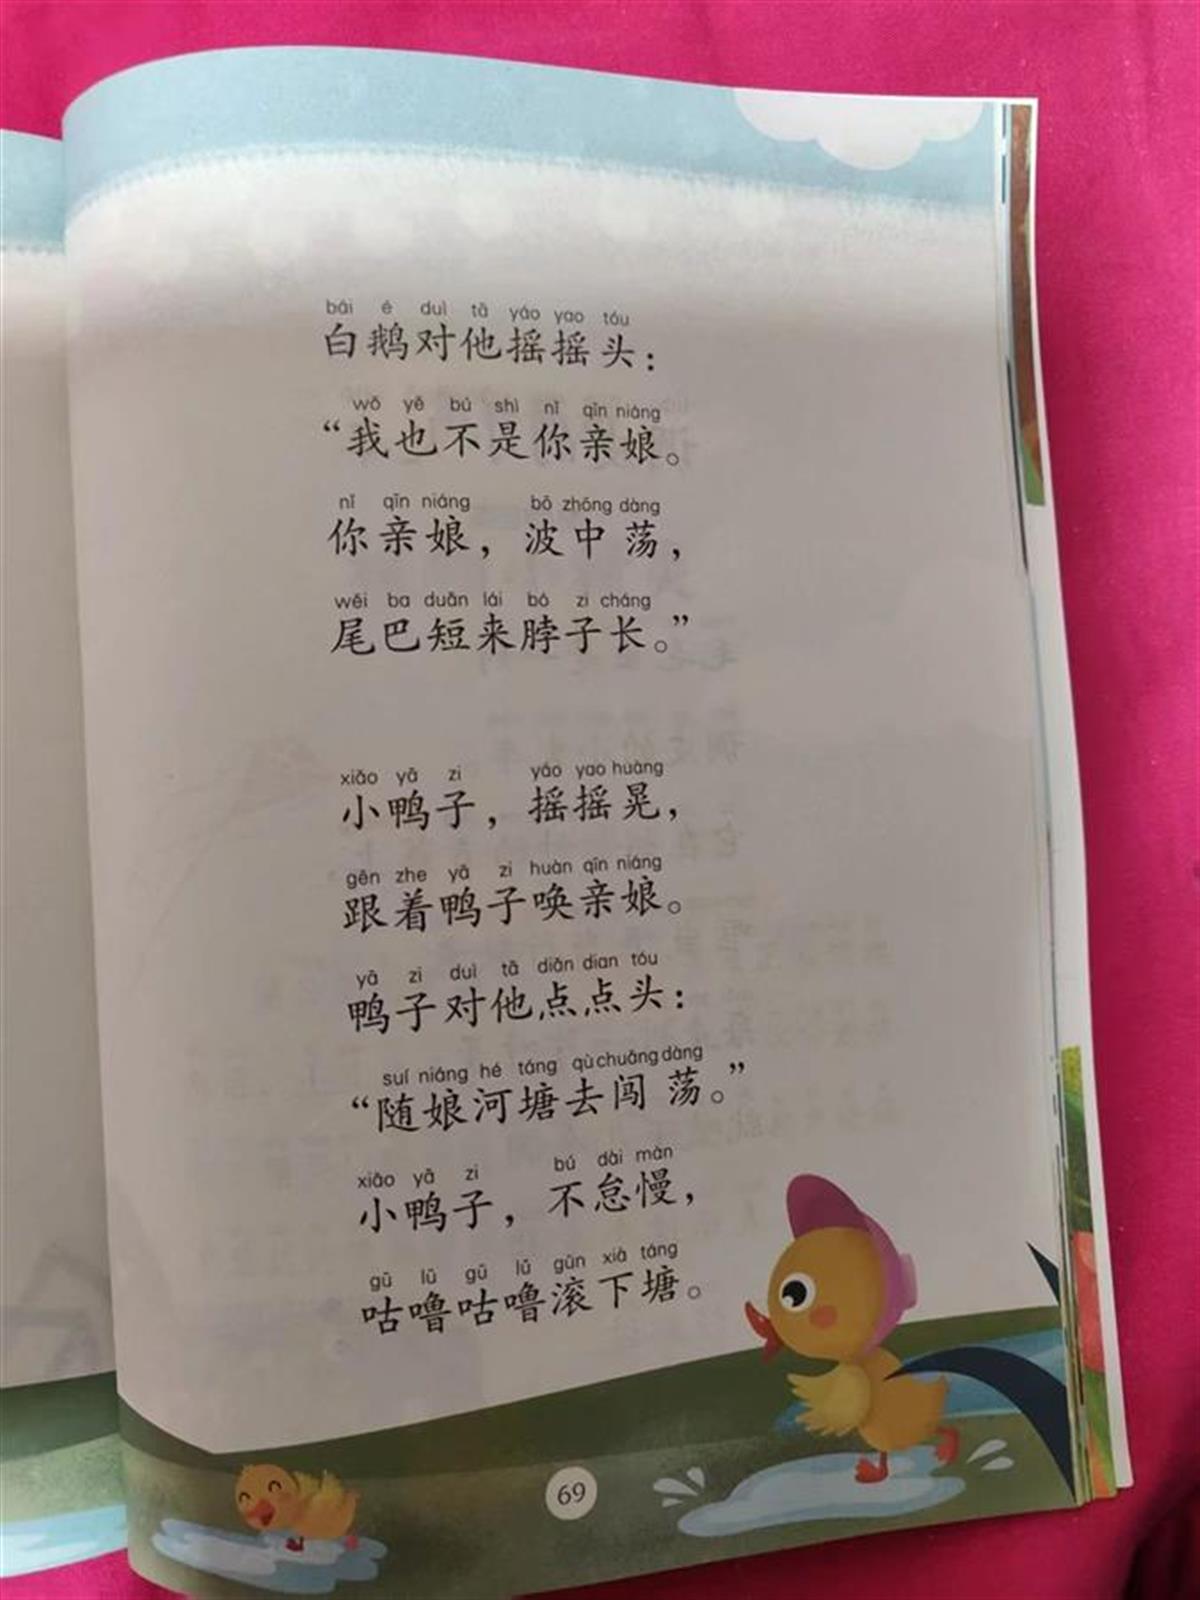 bái é duì tā yáo yao tóu
白鹅对他摇摇头：
wǒ yě bú shì nǐ qīn niáng
“我也不是你亲娘。
nǐ qīn niáng bō zhōng dàng
你亲娘，波中荡，
wěi ba duǎn lái bó zi cháng
尾巴短来脖子长。”
xiǎo yā zi yáo yao huàng
小鸭子，摇摇晃，
gēn zhe yā zi huàn qīn niáng
跟着鸭子唤亲娘。
yā zi duì tā diǎn dian tóu
鸭子对他点点头：
suí niáng hé táng qù chuǎng dàng
“随娘河塘去闯荡。”
xiǎo yā zi bú dài màn
小鸭子，不怠慢，
gū lū gū lū gǔn xià táng
咕噜咕噜滚下塘。
69